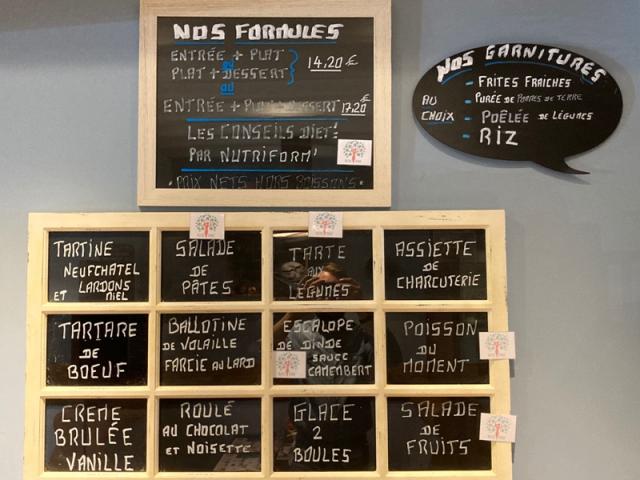 NOS FORMULES
ENTRÉE + PLAT
ou
PLAT + DESSERT
14,20 €
ou
ENTRÉE + PLAT + DESSERT 17,20 €
LES CONSEILS DIET!
PAR NUTRIFORM'
• PRIX NETS HORS BOISSONS •
NOS GARNITURES
AU
CHOIX
- FRITES FRAICHES
- PURÉE DE POMMES DE TERRE
- POÊLÉE DE LÉGUMES
- RIZ
TARTINE
NEUFCHATEL
LARDONS
ET MIEL
SALADE
DE
PÂTES
TARTE
AUX
LÉGUMES
ASSIETTE
DE
CHARCUTERIE
TARTARE
DE
BOEUF
BALLOTINE
DE VOLAILLE
FARCIE AU LARD
ESCALOPE
DE DINDE
SAUCE
CAMEMBERT
POISSON
DU
MOMENT
CREME
BRULÉE
VANILLE
ROULÉ
AU CHOCOLAT
ET NOISETTE
GLACE
2
BOULES
SALADE
DE
FRUITS